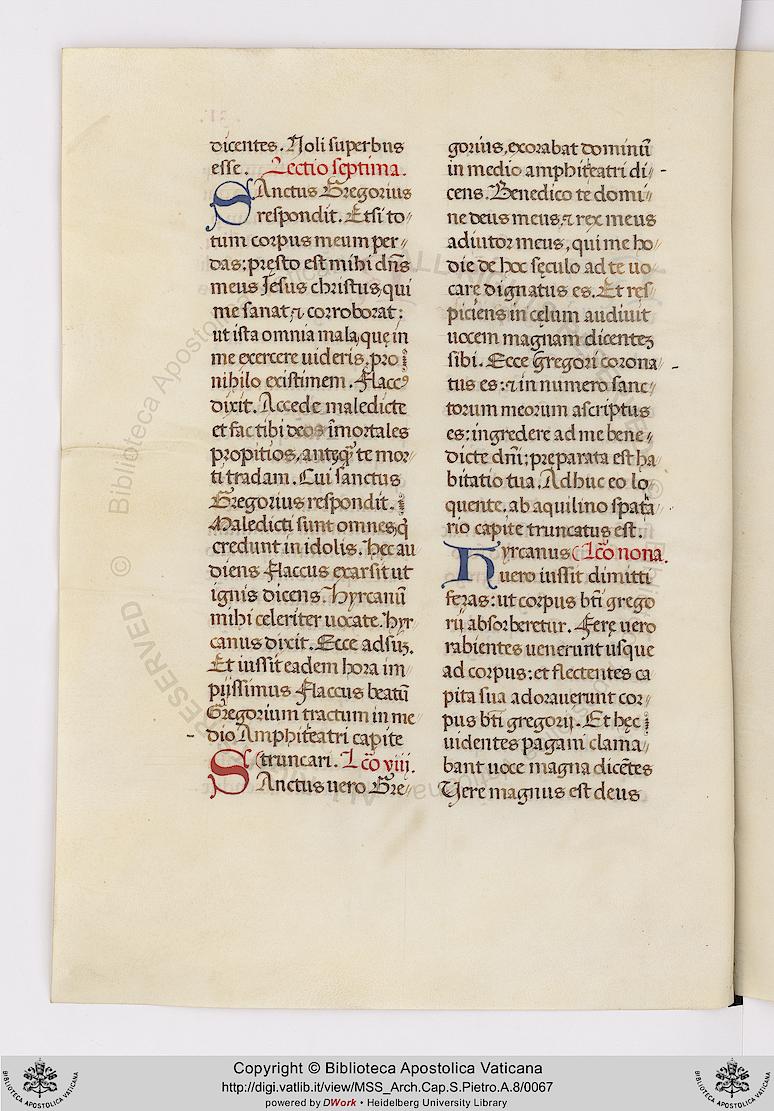 dicentes. Noli superbus
esse. Lectio septima.
SAnctus Gregorius
respondit. Etsi to//
tum corpus meum per//
das: pręsto est mihi dñs
meus Jesus christus, qui
me sanat ⁊ corroborat:
ut ista omnia mala, quę in
me exercere uideris, pro
nihilo existimem. Flaccꝰ
dixit. Accede maledicte
et fac tibi deos ĩmortales
propitios, anteq̃ te mor//
ti tradam. Cui sanctus
Gregorius respondit.
Maledicti sunt omnes, q̃
credunt in idolis. Hęc au
diens Flaccus exarsit ut
ignis dicens. Hyrcanũ
mihi celeriter uocate. Hyr
canus dixit. Ecce adsuꝫ.
Et iussit eadem hora im//
pijssimus Flaccus beatũ
Gregorium tractum in me
dio Amphiteatri capite
truncari. Lc̃o viij.
SAnctus uero Gre//
gorius, exorabat dominũ
in medio amphiteatri di//
cens. Benedico te domi//
ne deus meus, ⁊ rex meus
adiutor meus, qui me ho//
die de hoc sęculo ad te uo
care dignatus es. Et res//
piciens in cęlum audiuit
uocem magnam dicenteꝫ
sibi. Ecce Gregori corona//
tus es: ⁊ in numero sanc//
torum meorum ascriptus
es: ingredere ad me bene//
dicte dñi: preparata est ha
bitatio tua. Adhuc eo lo
quente, ab aquilino spata
rio capite truncatus est.
Hyrcanus Lc̃o nona.
uero iussit dimitti
feras: ut corpus bt̃i grego
rij absorberetur. Ferę uero
rabientes uenerunt usque
ad corpus: et flectentes ca
pita sua adorauerunt cor//
pus bt̃i gregorij. Et hęc
uidentes pagani clama//
bant uoce magna dicẽtes
Vere magnus est deus
© Biblioteca Apostolica
RESERVED
Copyright © Biblioteca Apostolica Vaticana
http://digi.vatlib.it/view/MSS_Arch.Cap.S.Pietro.A.8/0067
powered by DWork • Heidelberg University Library
BIBLIOTECA APOSTOLICA VATICANA
BIBLIOTECA APOSTOLICA VATICANA